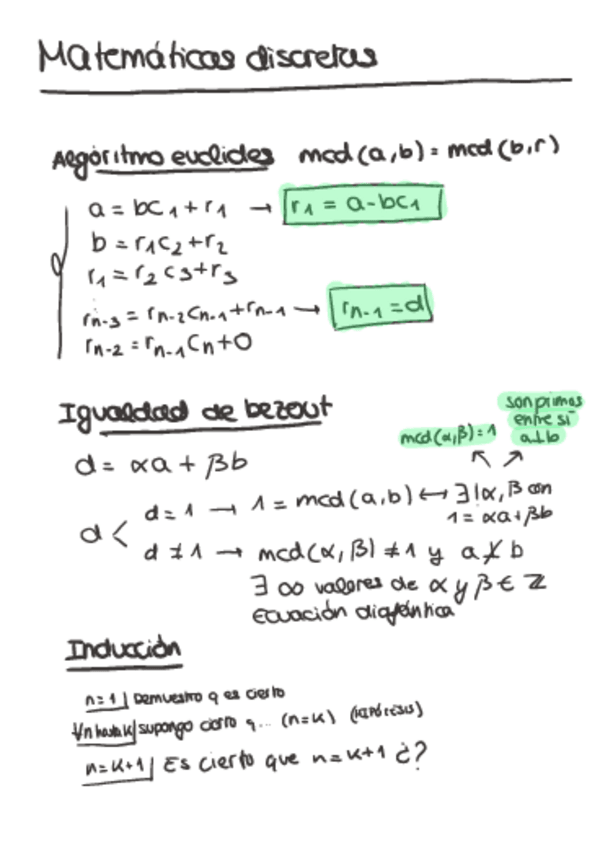 Matemáticas discretas
Algoritmo euclides mcd(a,b) = mcd(b,r)
a = bc₁+r₁ → r₁ = a-bc₁
b = r₁c₂+r₂
r₁ = r₂c₃+r₃
rₙ₋₃ = rₙ₋₂cₙ₋₁+rₙ₋₁ → rₙ₋₁ = d
rₙ₋₂ = rₙ₋₁cₙ+0
Igualdad de bezout
son primos
entre sí
mcd(α,β)=1 a⊥b
d = αa + βb
d < d=1 → 1 = mcd(a,b) ↔ ∃|α,β con
1 = αa+βb
d≠1 → mcd(α,β) ≠ 1 y a ⊥̸ b
∃ ∞ valores de α y β ∈ ℤ
Ecuación diofántica
Inducción
n=1| Demuestro q es cierto
∀n hasta k| supongo cierto q... (n=k) (HIPÓTESIS)
n=k+1| Es cierto que n=k+1 ¿?